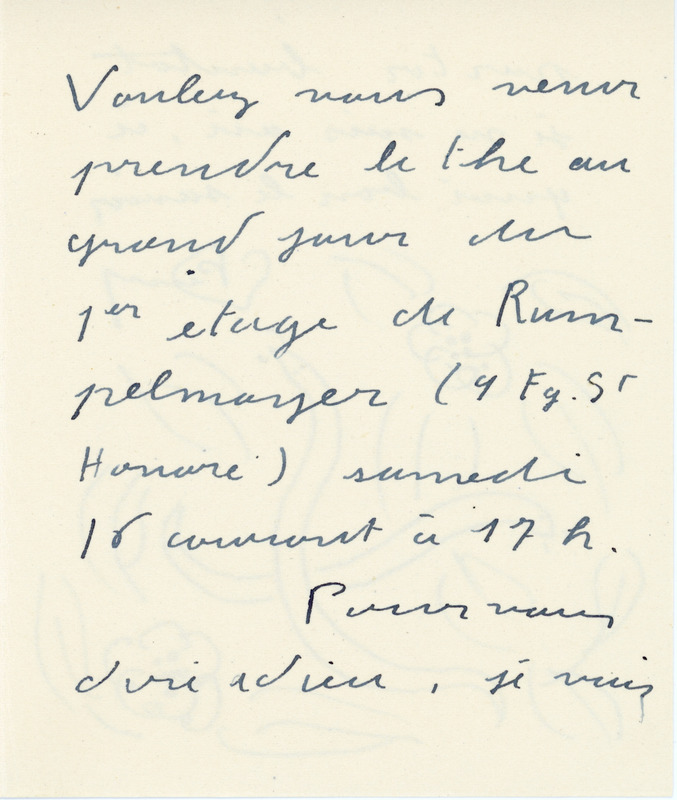 Voulez vous venir
prendre le the au
grand jour du
1er etage de Rum-
pelmayer (9 Fg. St
Honoré) samedi
courant à 17 h.
Pour vous
dire adieu, je vais